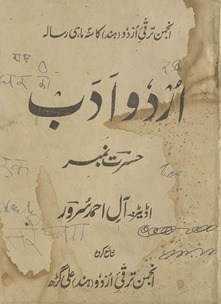 انجمن ترقی اُردو (ہند) کا سہ ماہی رسالہ
اُردو ادب
حسرت نمبر
اڈیٹر۔ آل احمد سرور
شائع کردہ
انجمن ترقی اُردو (ہند) علی گڑھ